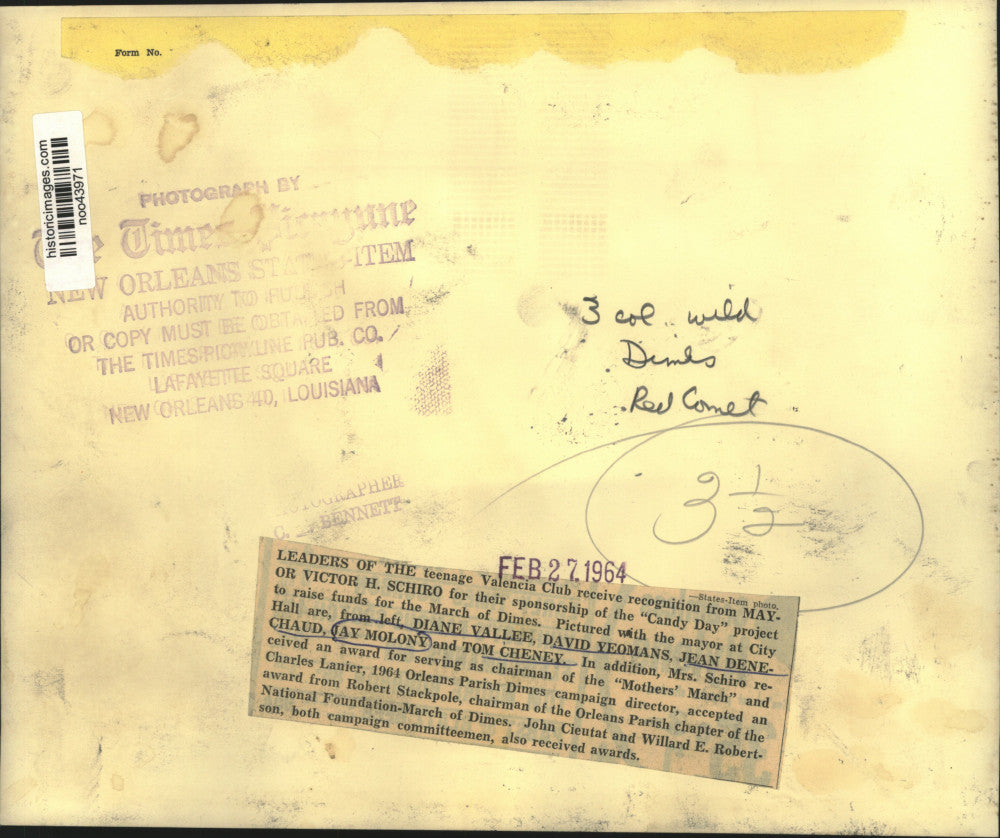 Form No.
historicimages.com
noo43971
PHOTOGRAPH BY
The Times-Picayune
NEW ORLEANS STATES-ITEM
AUTHORITY TO PUBLISH
OR COPY MUST BE OBTAINED FROM
THE TIMES-PICAYUNE PUB. CO.
LAFAYETTE SQUARE
NEW ORLEANS 40, LOUISIANA
3 col wild
Dimes
Red Comet
3 1/2
PHOTOGRAPHER
C. BENNETT
FEB 27 1964
—States-Item photo.
LEADERS OF THE teenage Valencia Club receive recognition from MAY-
OR VICTOR H. SCHIRO for their sponsorship of the "Candy Day" project
to raise funds for the March of Dimes. Pictured with the mayor at City
Hall are, from left, DIANE VALLEE, DAVID YEOMANS, JEAN DENE-
CHAUD, JAY MOLONY and TOM CHENEY. In addition, Mrs. Schiro re-
ceived an award for serving as chairman of the "Mothers' March" and
Charles Lanier, 1964 Orleans Parish Dimes campaign director, accepted an
award from Robert Stackpole, chairman of the Orleans Parish chapter of the
National Foundation-March of Dimes. John Cieutat and Willard E. Robert-
son, both campaign committeemen, also received awards.